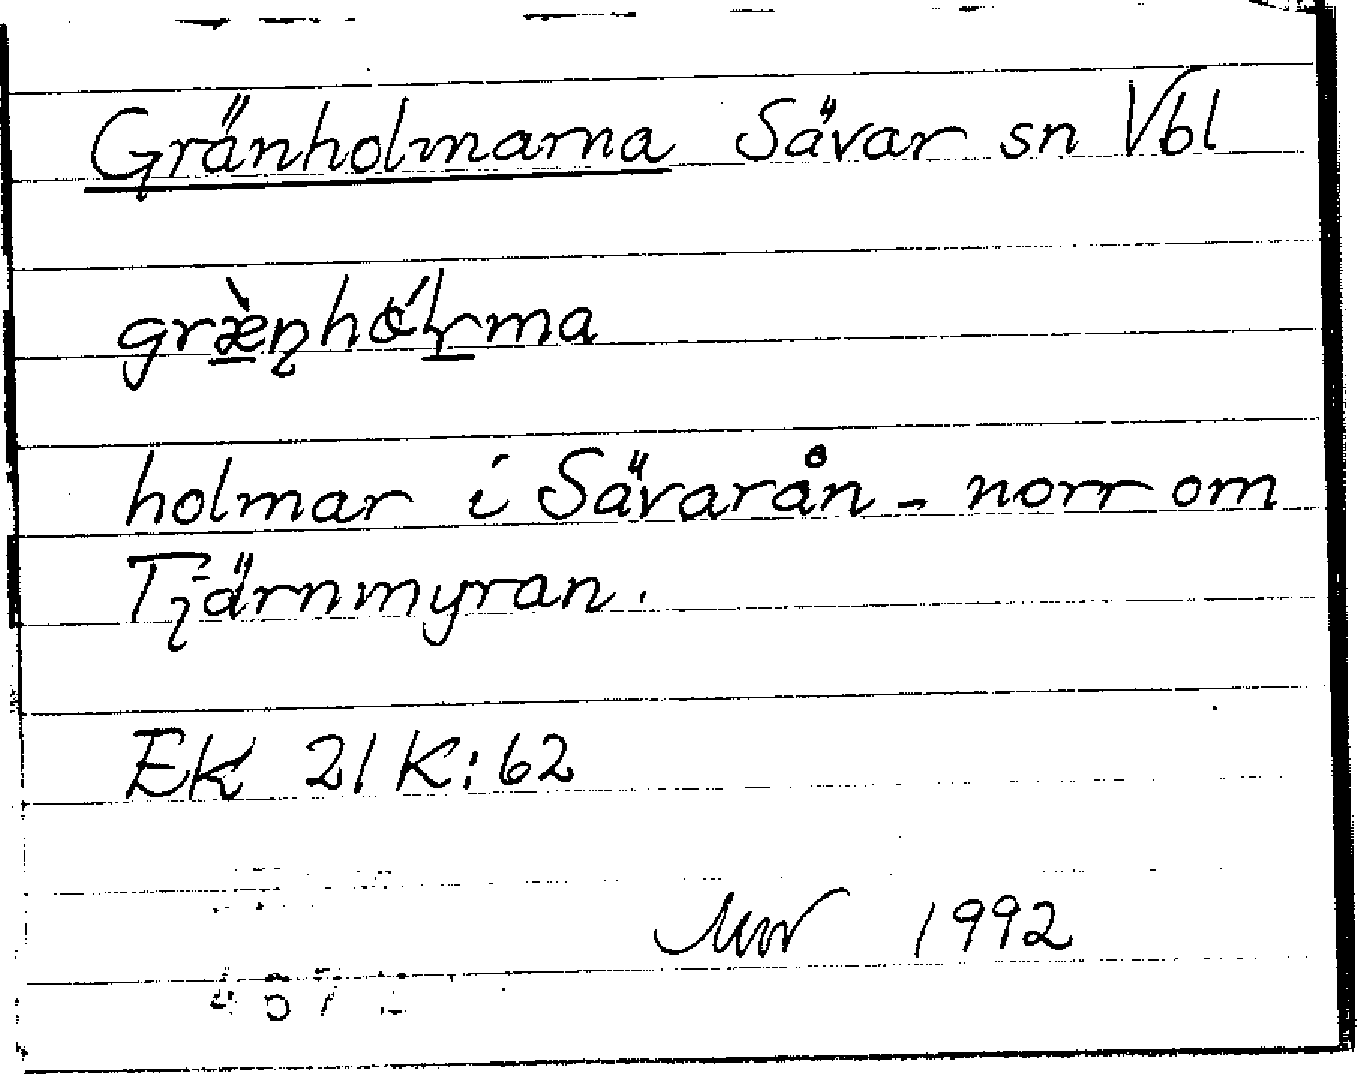 Gränholmarna Sävar sn Vbl
holmar i Sävarån - norr om
Tjärnmyran.
EK 21 K:62
1992